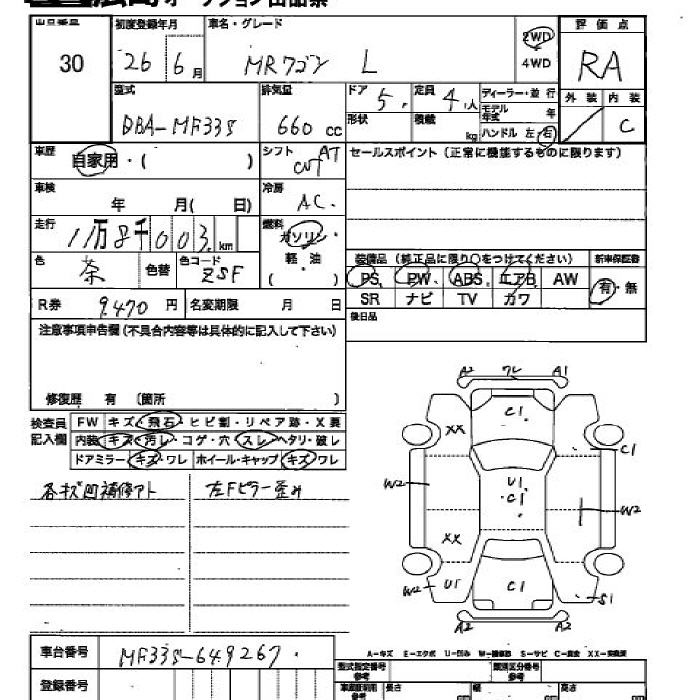 広島オークション出品票
出品番号 初度登録年月 車名・グレード 評価点
30 26 6月 MRワゴン L 2WD RA
4WD
型式 排気量 ドア 5 定員 4人 ディーラー・並行 外装 内装
DBA-MF33S 660cc 形状 積載 kg モデル年式 年 C
ハンドル 左 右
車歴 自家用・( ) シフト AT セールスポイント(正常に機能するものに限ります)
車検 年 月( 日) 冷房 AC
走行 11万8千003km 燃料 ガソリン・
色 茶 色替 色コード ZSF 軽・油 ( )
装備品(純正品に限り○をつけてください) 新車保証書
PS PW ABS エアB AW 有・無
SR ナビ TV カワ
R券 9,470円 名変期限 月 日 後日品
注意事項申告欄(不具合内容等は具体的に記入して下さい)
修復歴 有 (箇所 )
検査員記入欄 FW キズ・飛石・ヒビ割・リペア跡・X要
内装 キズ・汚レ・コゲ・穴・スレ・ヘタリ・破レ
ドアミラー キズ・ワレ ホイール・キャップ キズ・ワレ
各キズ凹補修アト 左Fピラー歪み
A2 ワレ A1
C1
XX
C1
W2 U1 C1 W2
XX
W2 U1 C1 S1
A2 A2
A-キズ E-エクボ U-凹み W-補修跡 S-サビ C-腐食 XX-交換済
車台番号 MF33S-649267
型式指定番号 参考 類別区分番号 参考
登録番号 長さ 幅 高さ